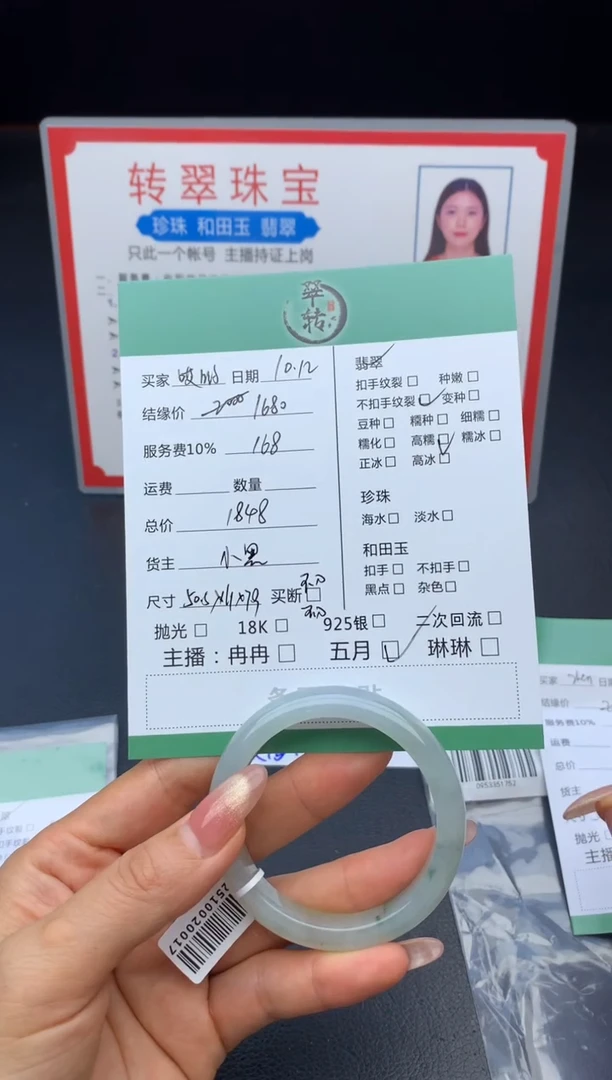 转翠珠宝
珍珠 和田玉 翡翠
只此一个帐号 主播持证上岗
翠转
买家 日期 10.12
结缘价 2000 1680
服务费10% 168
运费 数量
总价 1848
货主 小黑
尺寸 买断
抛光 18K 925银 二次回流
主播：冉冉 五月 琳琳
翡翠
扣手纹裂 种嫩
不扣手纹裂 变种
豆种 糯种 细糯
糯化 高糯 糯冰
正冰 高冰
珍珠
海水 淡水
和田玉
扣手 不扣手
黑点 杂色
2510020017
买家 日
结缘价
服务费10%
运费
总价
货主
抛光
主播